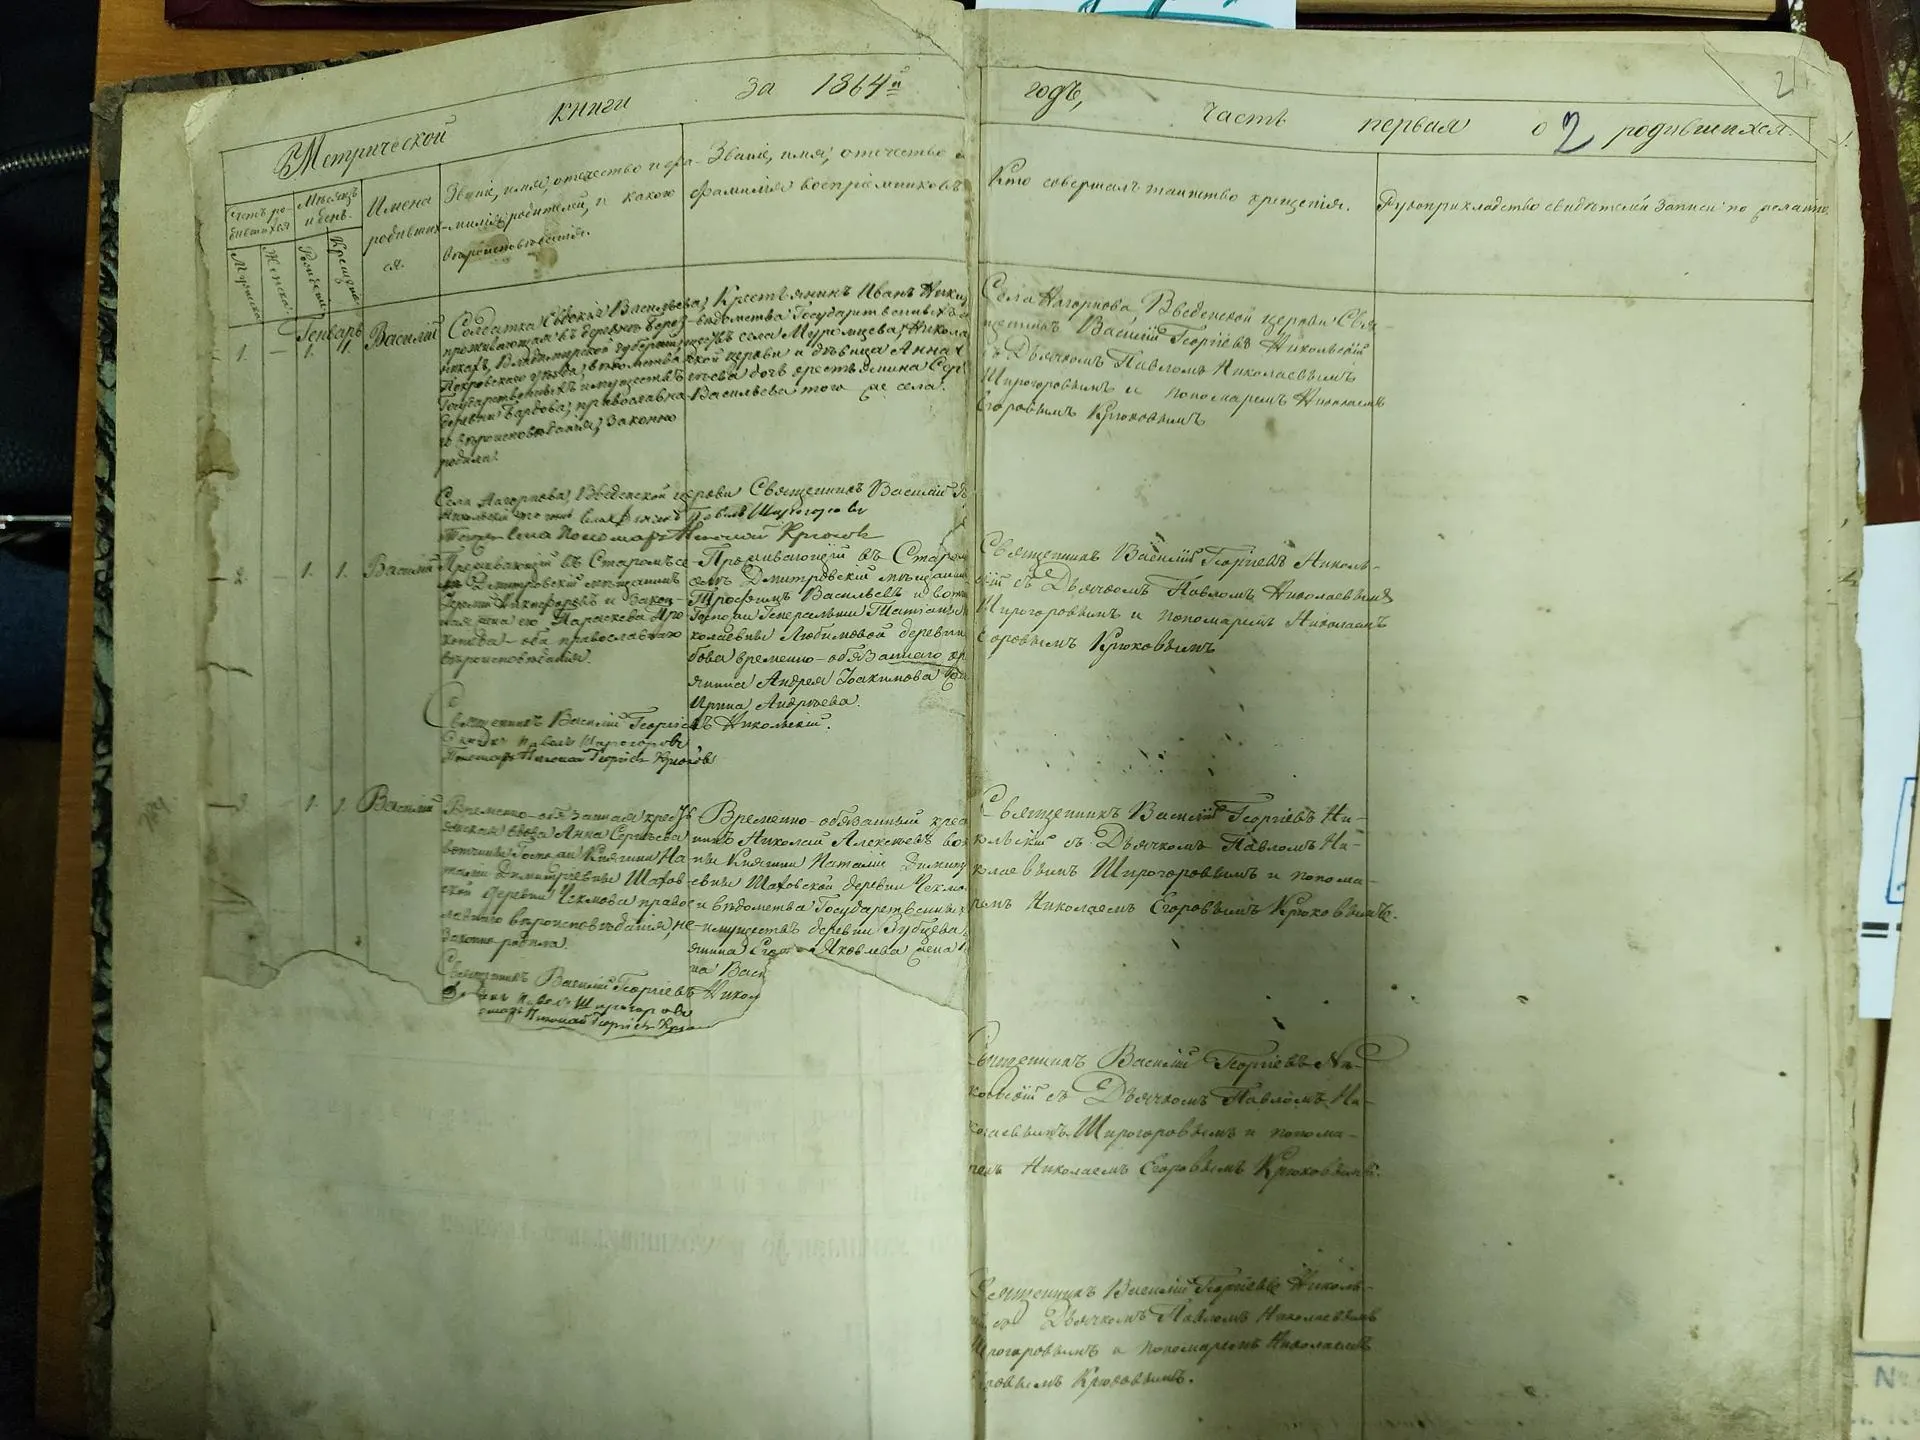 Метрической книги за 1864й годъ, часть первая о родившихся.
2
2
Счетъ родившихся.
Мужеска
Женска
Мѣсяцъ и день.
Рожденія
Крещенія
Имена родившихся.
Званіе, имя, отечество и фамилія родителей, и какого вѣроисповѣданія.
Званіе, имя, отечество и фамилія воспріемниковъ
Кто совершалъ таинство крещенія.
Рукоприкладство свидѣтелей записи по желанію.
Генварь
1. — 1. 1.
Василій
Солдатка Васильева,
проживающая въ деревнѣ
Владимірской губерніи
Покровскаго уѣзда, вѣдомства
Государственныхъ имуществъ
деревни православна
го вѣроисповѣданія, законно
родила.
Крестьянинъ Иванъ
вѣдомства Государственныхъ
села Муромцева, Никола
кой церкви и дѣвица Анна
дочь крестьянина
Васильева того же села.
Села Нагорнова, Введенской церкви Свя-
щенникъ Василій Георгіевъ Никольскій
съ Дьячкомъ Павломъ Николаевымъ
Широгоровымъ и пономаремъ Николаемъ
Егоровымъ Крюковымъ
Села Нагорнова Введенской церкви Священникъ Василій
Павелъ Широгоровъ
Пономарь Николай Крюковъ
2. — 1. 1.
Василій
Проживающій въ
Дмитровскій мѣщанинъ
Никифоровъ и закон-
ная жена его Параскева
оба православнаго
вѣроисповѣданія.
Проживающій въ
Дмитровскій мѣщанинъ
Трофимъ Васильевъ и вотчины
Госпожи Генеральши Татіаны
колаевны Любимовой деревни
бова временно-обязаннаго кр
янина Андрея Іоакимова
Ирина Андреева.
Священникъ Василій Георгіевъ Николь-
скій съ Дьячкомъ Павломъ Николаевымъ
Широгоровымъ и пономаремъ Николаемъ
Егоровымъ Крюковымъ
Священникъ Василій Георгіевъ Никольскій.
Дьячекъ Павелъ Широгоровъ
Пономарь Николай Георгіевъ Крюковъ
3. 1. 1.
Василій
Временно-обязанная крестъ
янская вдова Анна Сергѣева
вотчины Госпожи Княгини На-
таліи Димитріевны Шахов-
ской деревни Чекмова право-
славнаго вѣроисповѣданія, не-
законно родила.
Временно-обязанный крес
нинъ Николай Алексѣевъ вот
ны Княгини Наталіи Димитр
евны Шаховской деревни Чекмо
и вѣдомства Государственныхъ
имуществъ деревни Рубцева
янина Яковлева жена
на Васи
Священникъ Василій Георгіевъ Ни-
кольскій съ Дьячкомъ Павломъ Ни-
колаевымъ Широгоровымъ и понома-
ремъ Николаемъ Егоровымъ Крюковымъ.
Священникъ Василій Георгіевъ Никол
Павелъ Широгоровъ
Николай Георгіевъ Крю
Священникъ Василій Георгіевъ Ни-
кольскій съ Дьячкомъ Павломъ Ни-
колаевымъ Широгоровымъ и понома-
ремъ Николаемъ Егоровымъ Крюковымъ.
Священникъ Василій Георгіевъ Николь-
съ Дьячкомъ Павломъ Николаевымъ
Широгоровымъ и пономаремъ Николаемъ
Егоровымъ Крюковымъ.